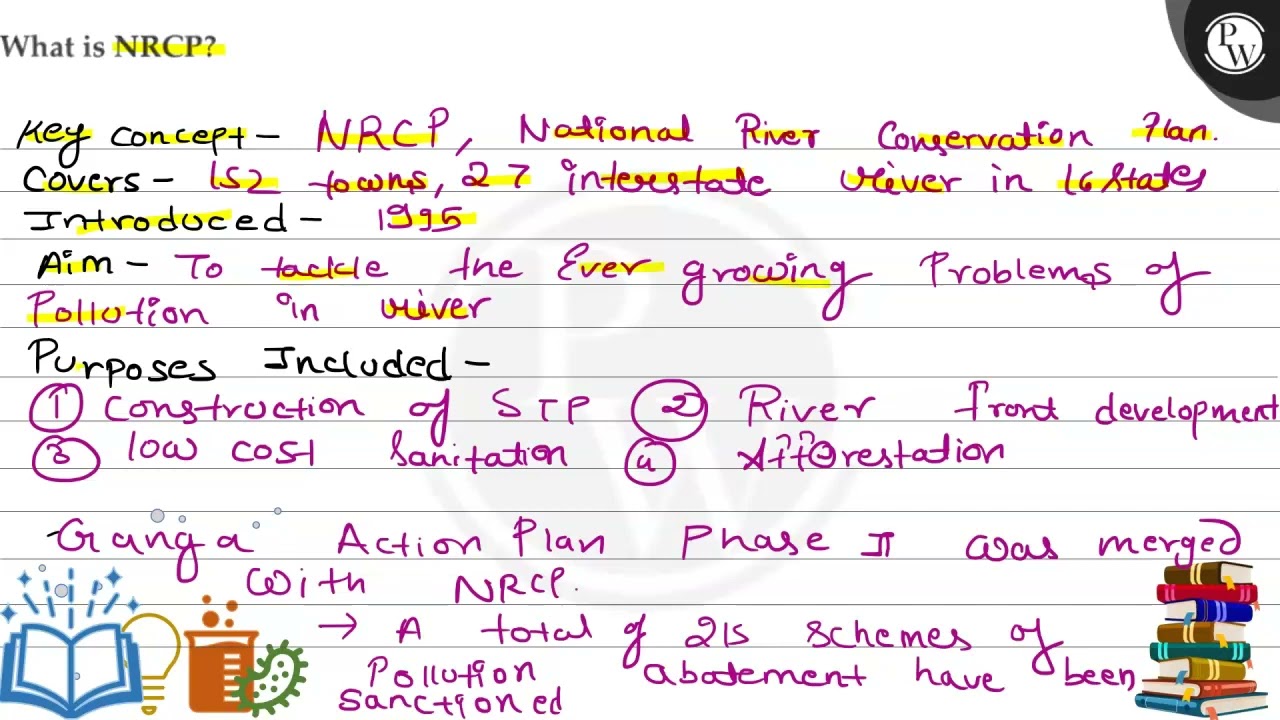 What is NRCP?
PW
Key concept - NRCP, National River Conservation Plan.
Covers - 152 towns, 27 interstate river in 16 States
Introduced - 1995
Aim - To tackle the Ever growing Problems of
Pollution in river
Purposes Included -
① Construction of STP ② River front development
③ low cost Sanitation ④ Afforestation
Ganga Action Plan Phase II was merged
with NRCP.
→ A total of 215 schemes of
Pollution abatement have been
Sanctioned